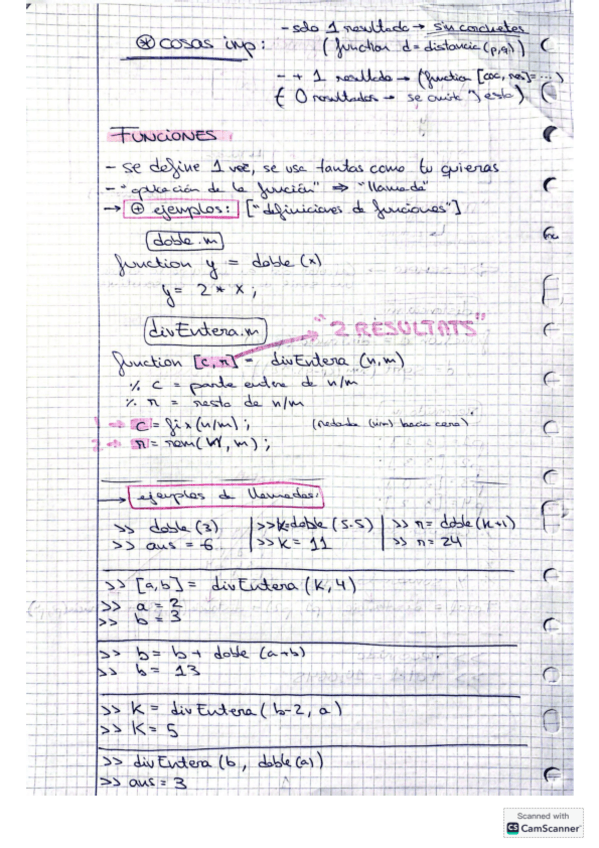 - solo 1 resultado → sin corchetes
⊛ cosas imp: (function d = distancia (p,q))
- + 1 resultado → (function [coc, res] = ...)
(- 0 resultados → se omite ") esto)
FUNCIONES
- se define 1 vez, se usa tantas como tu quieras
- "aplicación de la función" ⇒ "llamada"
→ ⊕ ejemplos: ["definiciones de funciones"]
doble.m
function y = doble (x)
y = 2 * x ;
divEntera.m "2 RESULTATS"
function [c, r] = divEntera (n, m)
% c = parte entera de n/m
% r = resto de n/m
1 → c = fix (n/m) ; (redondea (sim) hacia cero)
2 → r = rem( n, m) ;
→ ejemplos de llamadas:
>> doble (3) | >> k = doble (5.5) | >> r = doble (k+1)
>> ans = 6 | >> k = 11 | >> r = 24
>> [a,b] = divEntera (k, 4)
>> a = 2
>> b = 3
>> b = b + doble (a+b)
>> b = 13
>> k = divEntera ( b-2, a )
>> k = 5
>> divEntera (b, doble (a))
>> ans = 3
Scanned with
CS CamScanner